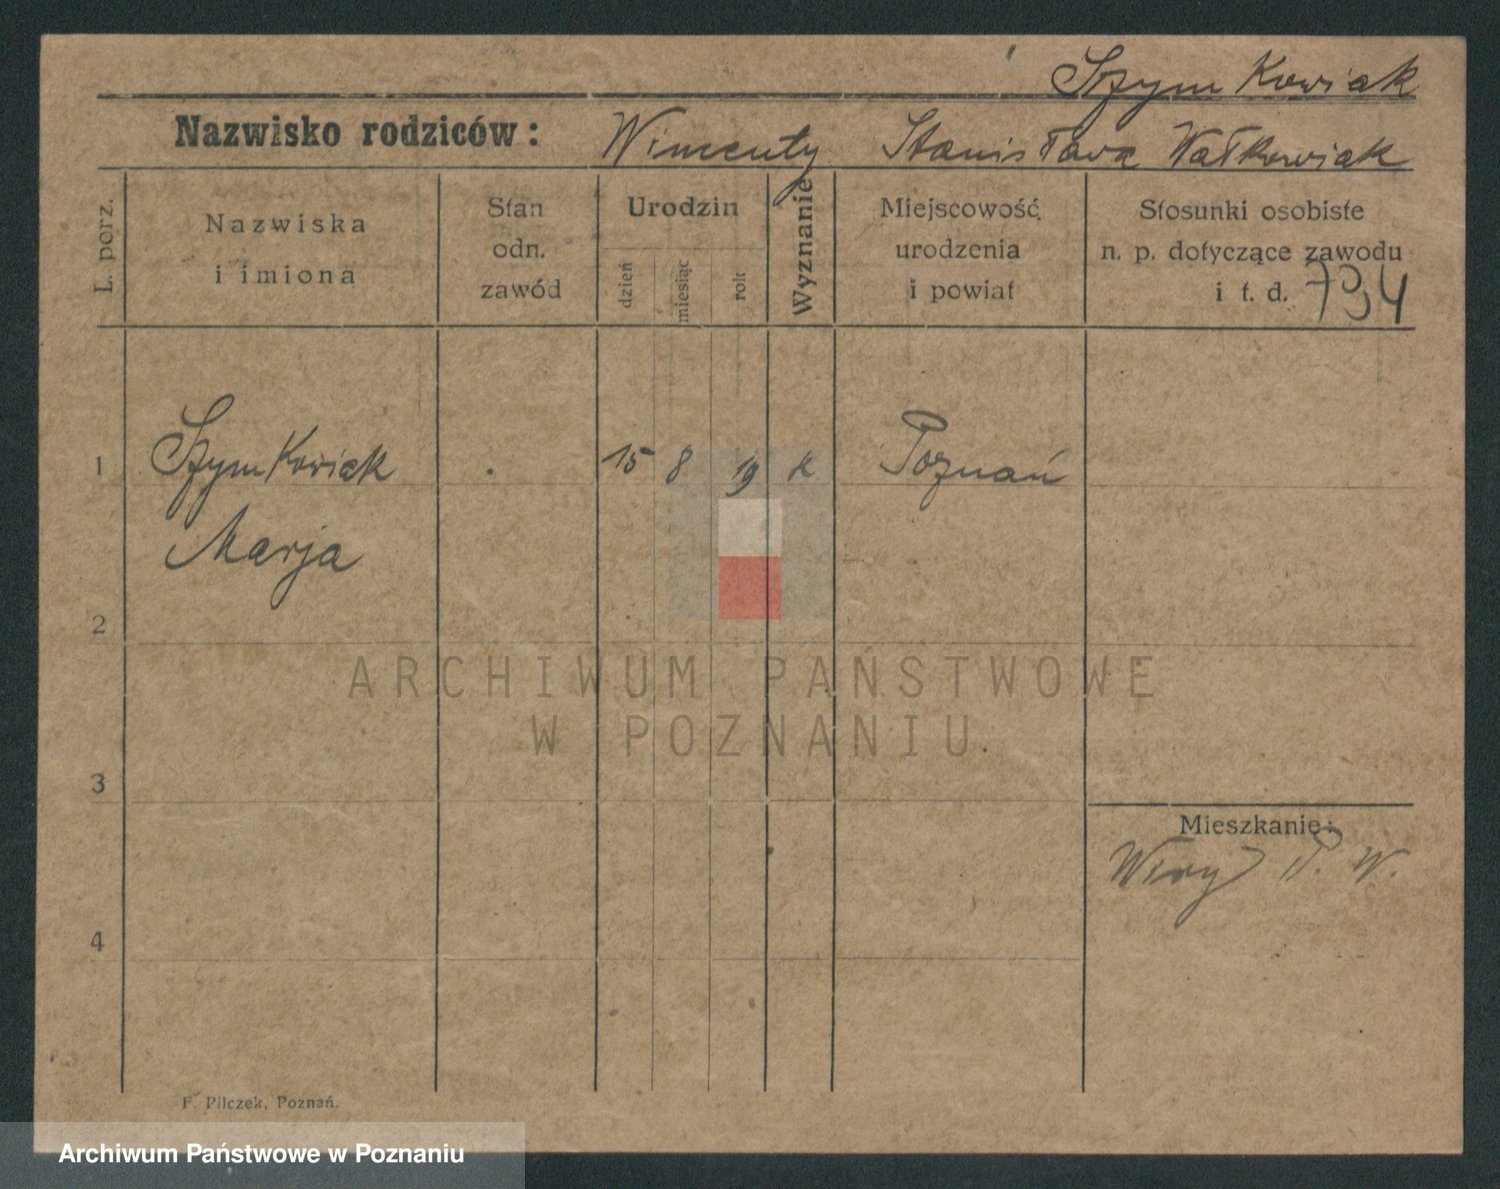 Szymkowiak
Nazwisko rodziców: Wincenty Stanisława Wałkowiak
L. porz.
Nazwiska
i imiona
Stan
odn.
zawód
Urodzin
dzień
miesiąc
rok
Wyznanie
Miejscowość
urodzenia
i powiat
Stosunki osobiste
n. p. dotyczące zawodu
i t. d. 794
1 Szymkowiak . 15 8 19 k Poznań
Marja
2
3
4
Mieszkanie:
Wiry P. W.
F. Pilczek, Poznań.
ARCHIWUM PAŃSTWOWE
W POZNANIU
Archiwum Państwowe w Poznaniu